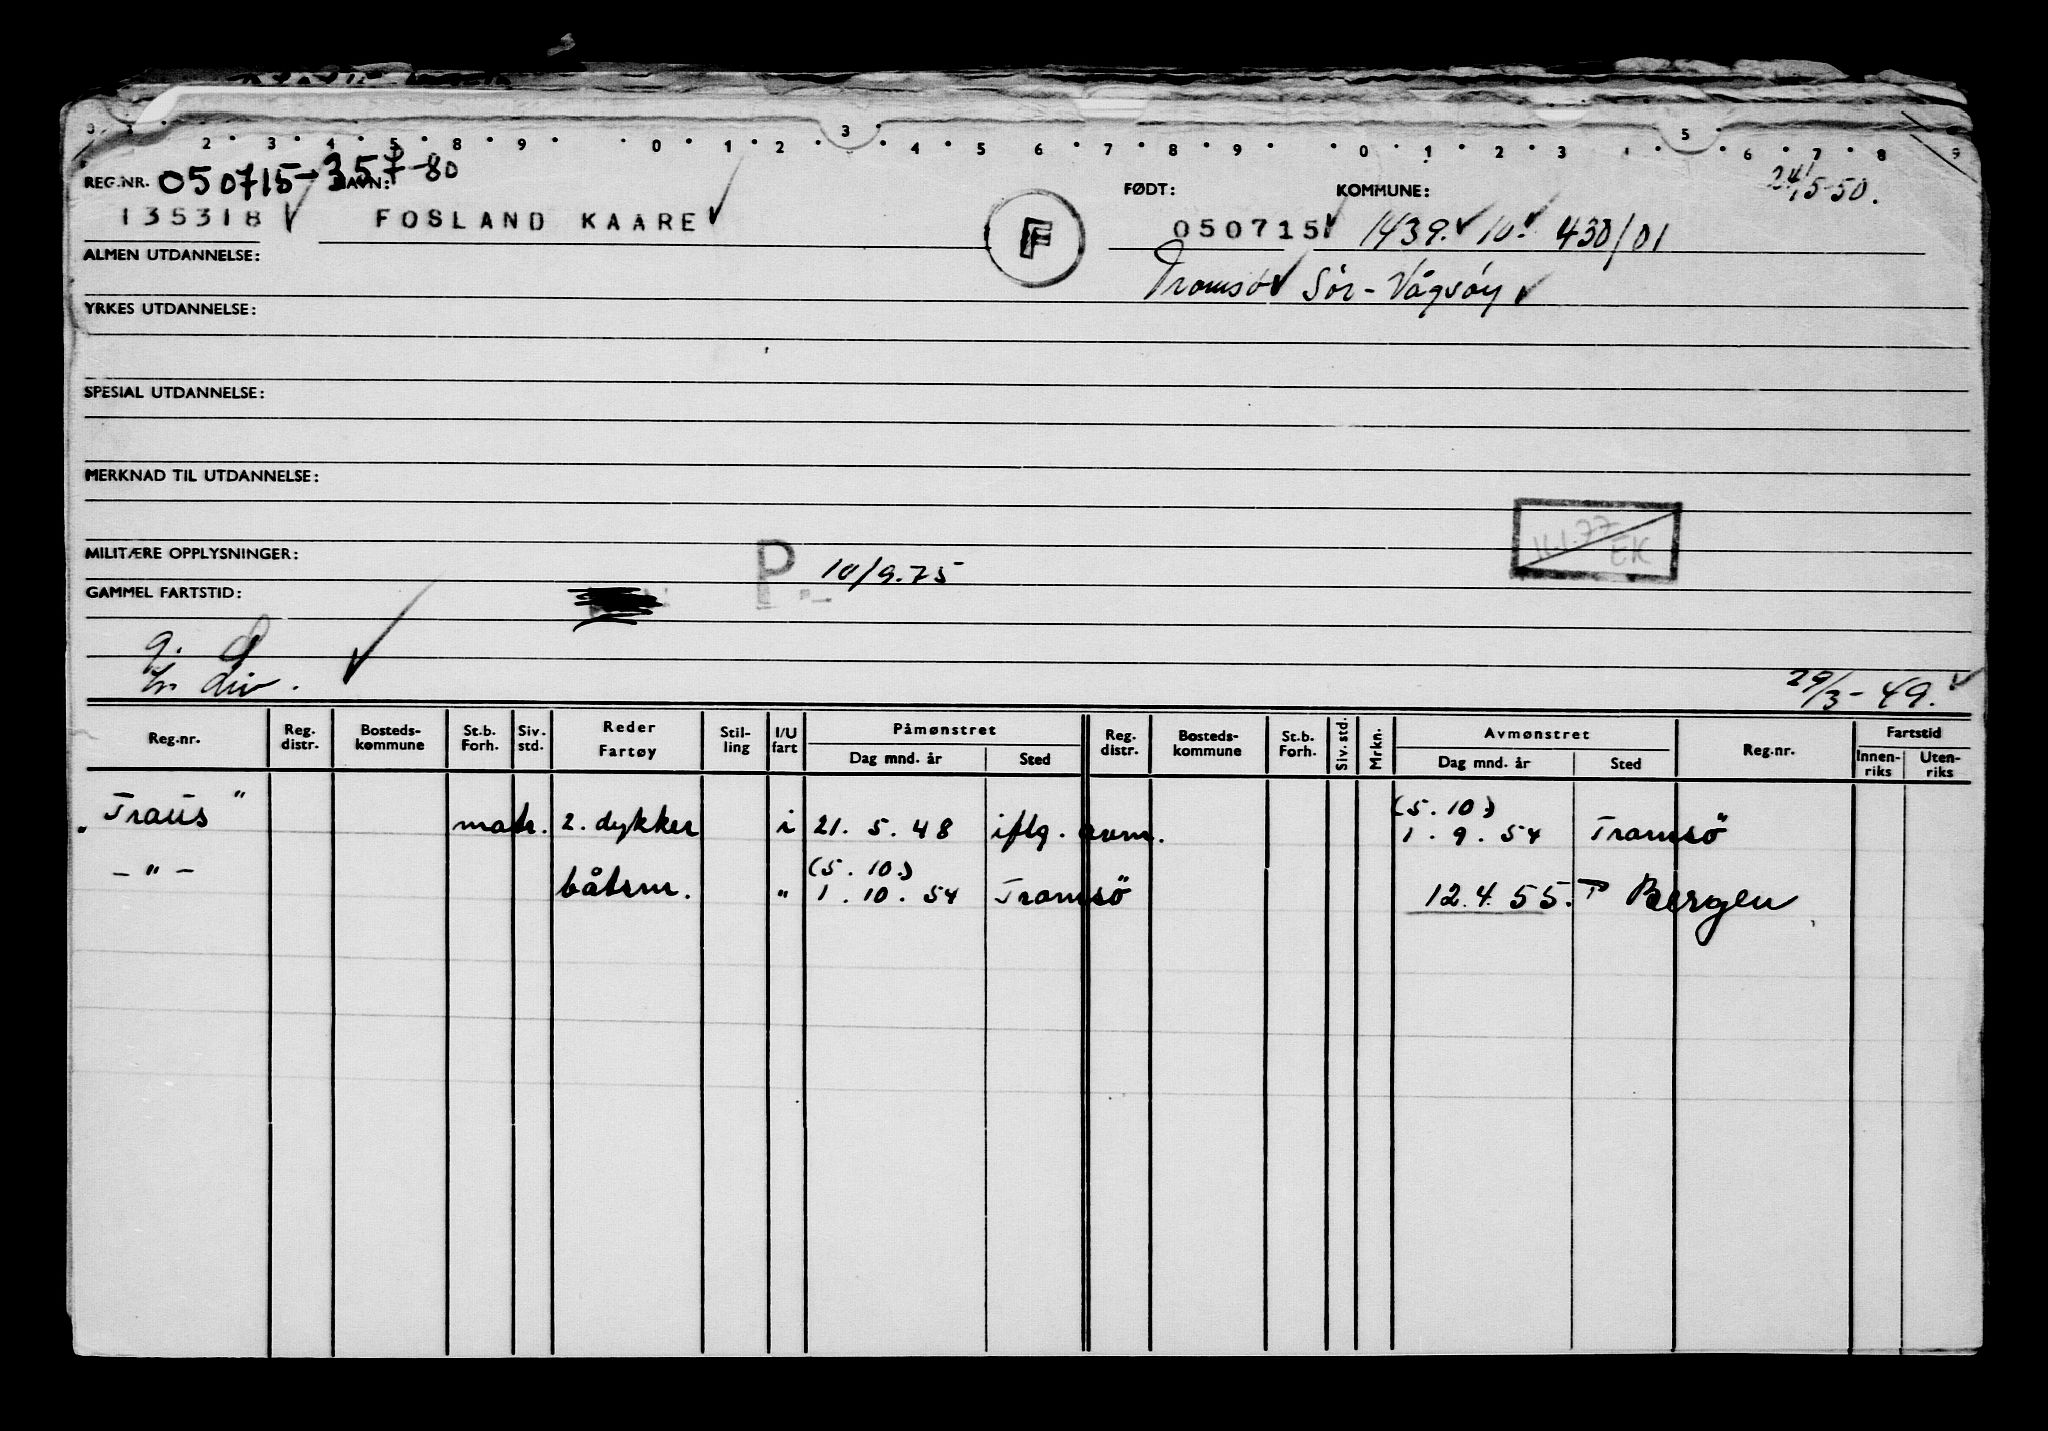 2 3 4 5 8 9 0 1 2 3 4 5 6 7 8 9 0 1 2 3 4 5 6 7 8 9
REG.NR. 050715-357-80 NAVN: FØDT: KOMMUNE: 24/5-50.
135318 FOSLAND KAARE F 050715 1439. 10. 430/01
ALMEN UTDANNELSE: Tromsø Sör-Vågsöy
YRKES UTDANNELSE:
SPESIAL UTDANNELSE:
MERKNAD TIL UTDANNELSE:
11.1.77 EK
MILITÆRE OPPLYSNINGER:
P. 10/9.75
GAMMEL FARTSTID:
div. 29/3-49.
Reg.nr. Reg. distr. Bosteds-kommune St.b. Forh. Siv. std. Reder Fartøy Stil-ling I/U fart Påmønstret Dag mnd. år Sted Reg. distr. Bosteds-kommune St.b. Forh. Siv. std. Mrkn. Avmønstret Dag mnd. år Sted Reg.nr. Fartstid Innen-riks Uten-riks
(5.10.)
"Traus" matr. 2. dykker i 21. 5. 48 iflg. avm. 1. 9. 54 Tromsö
(5. 10.)
- " - båtsm. " 1. 10. 54 Tromsö 12.4.55. Bergen